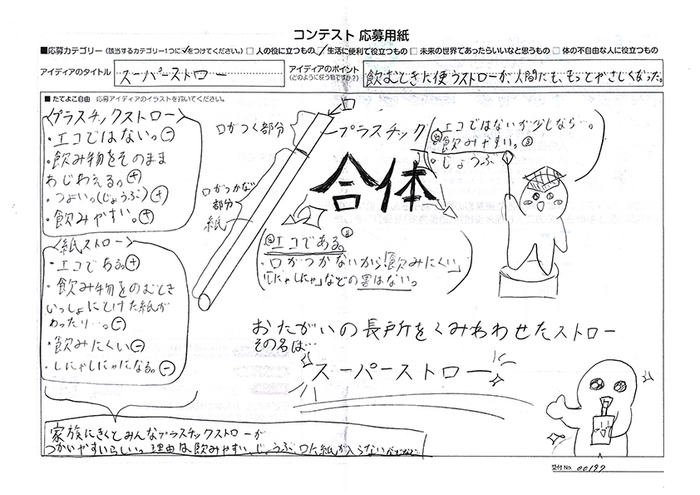 コンテスト 応募用紙
■応募カテゴリー（該当するカテゴリー1つに✓をつけてください。） □ 人の役に立つもの ☑ 生活に便利で役立つもの □ 未来の世界であったらいいなと思うもの □ 体の不自由な人に役立つもの
アイディアのタイトル
スーパーストロー
アイディアのポイント
（どのように使う物ですか？）
飲むときに使うストローが、人間にも、もっとやさしくなった。
■ たてよこ自由 応募アイディアのイラストを描いてください。
〈プラスチックストロー〉
・エコではない。⊖
・飲み物をそのまま
あじわえる。⊕
・つよい。(じょうぶ)⊕
・飲みやすい。⊕
〈紙ストロー〉
・エコである。⊕
・飲み物をのむとき
いっしょにとけた紙が
わったり…。⊖
・飲みにくい⊖
・しにゃしにゃになる。⊖
口がつく部分
プラスチック
口がつかない
部分
紙
合体
・エコではないが少しなら…。
飲みやすい。
・じょうぶ
エコである。
・口がつかないから「飲みにくい」
「しにゃしにゃ」などの害はない。
おたがいの長所をくみあわせたストロー
その名は…
スーパーストロー
家族にきくとみんなプラスチックストローが
つかいやすいらしい。理由は、飲みやすい、じょうぶ、口に紙が入らないがだった。
受付No. 00197